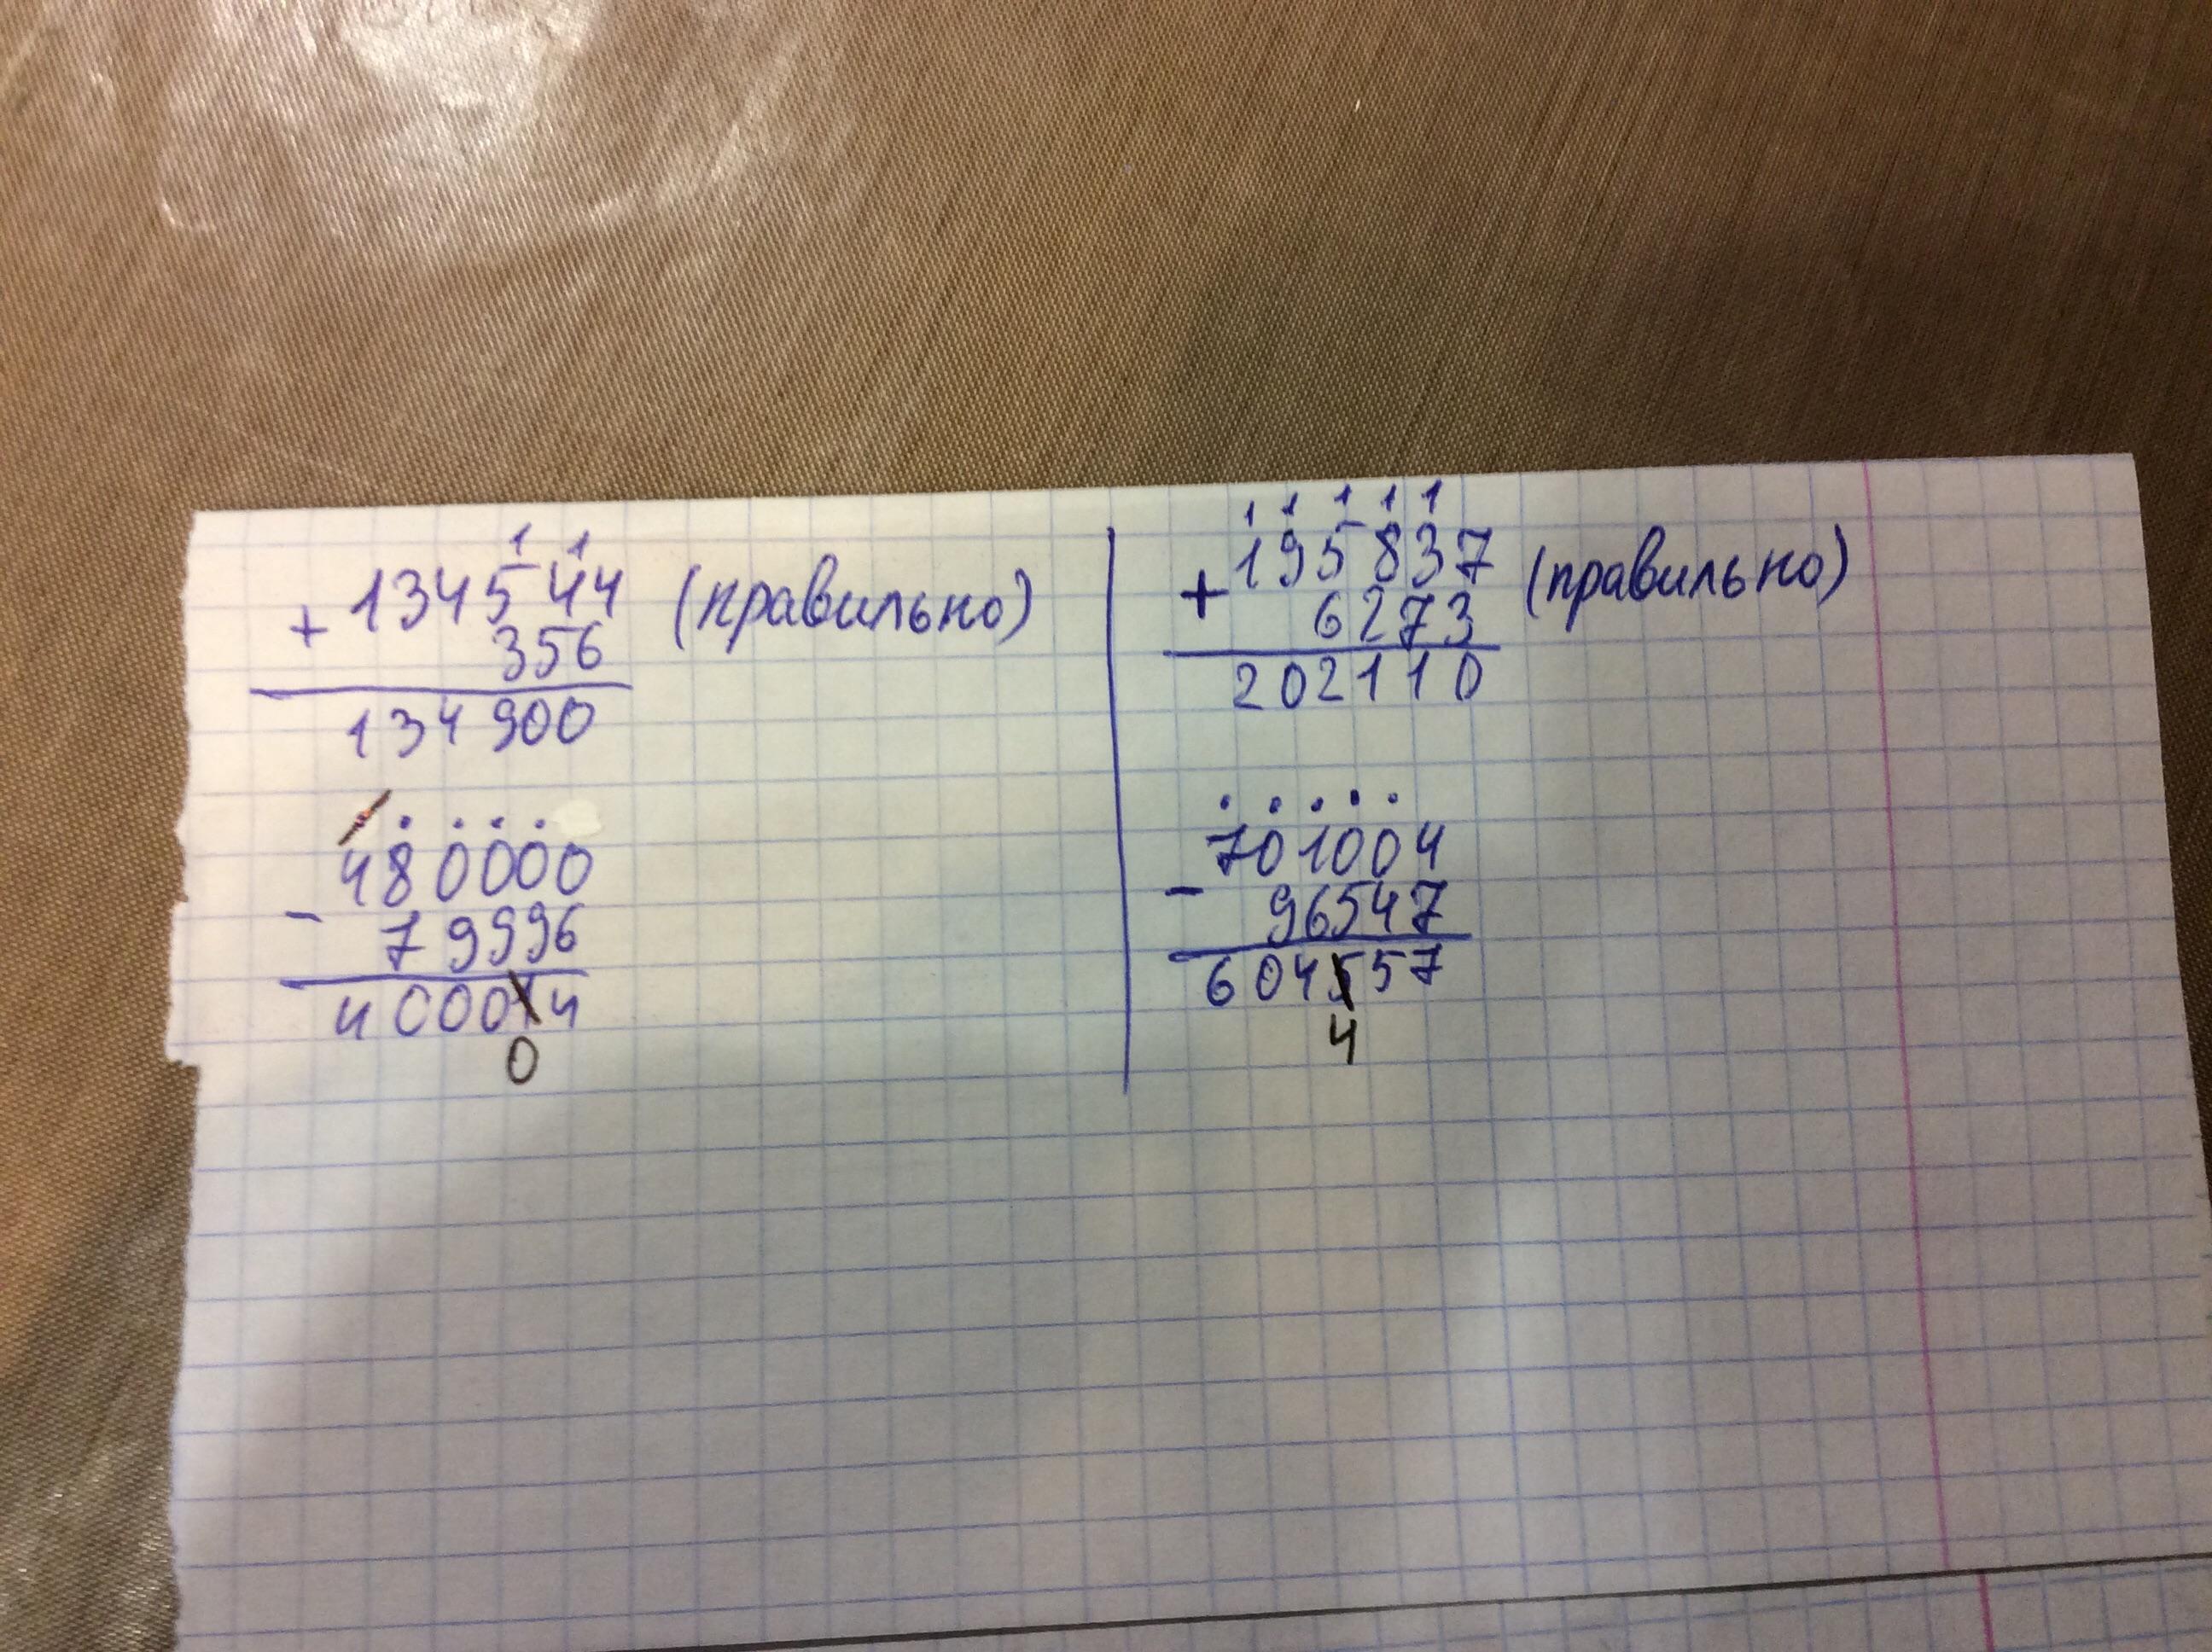 1 1
+ 134544 (правильно)
356
134900
480000
- 79996
400014
0
1 1 1 1 1
+ 195837 (правильно)
6273
202110
701004
- 96547
604557
4